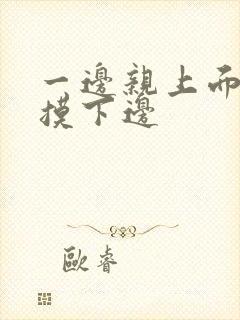 一邊親上面
摸下邊
歐睿